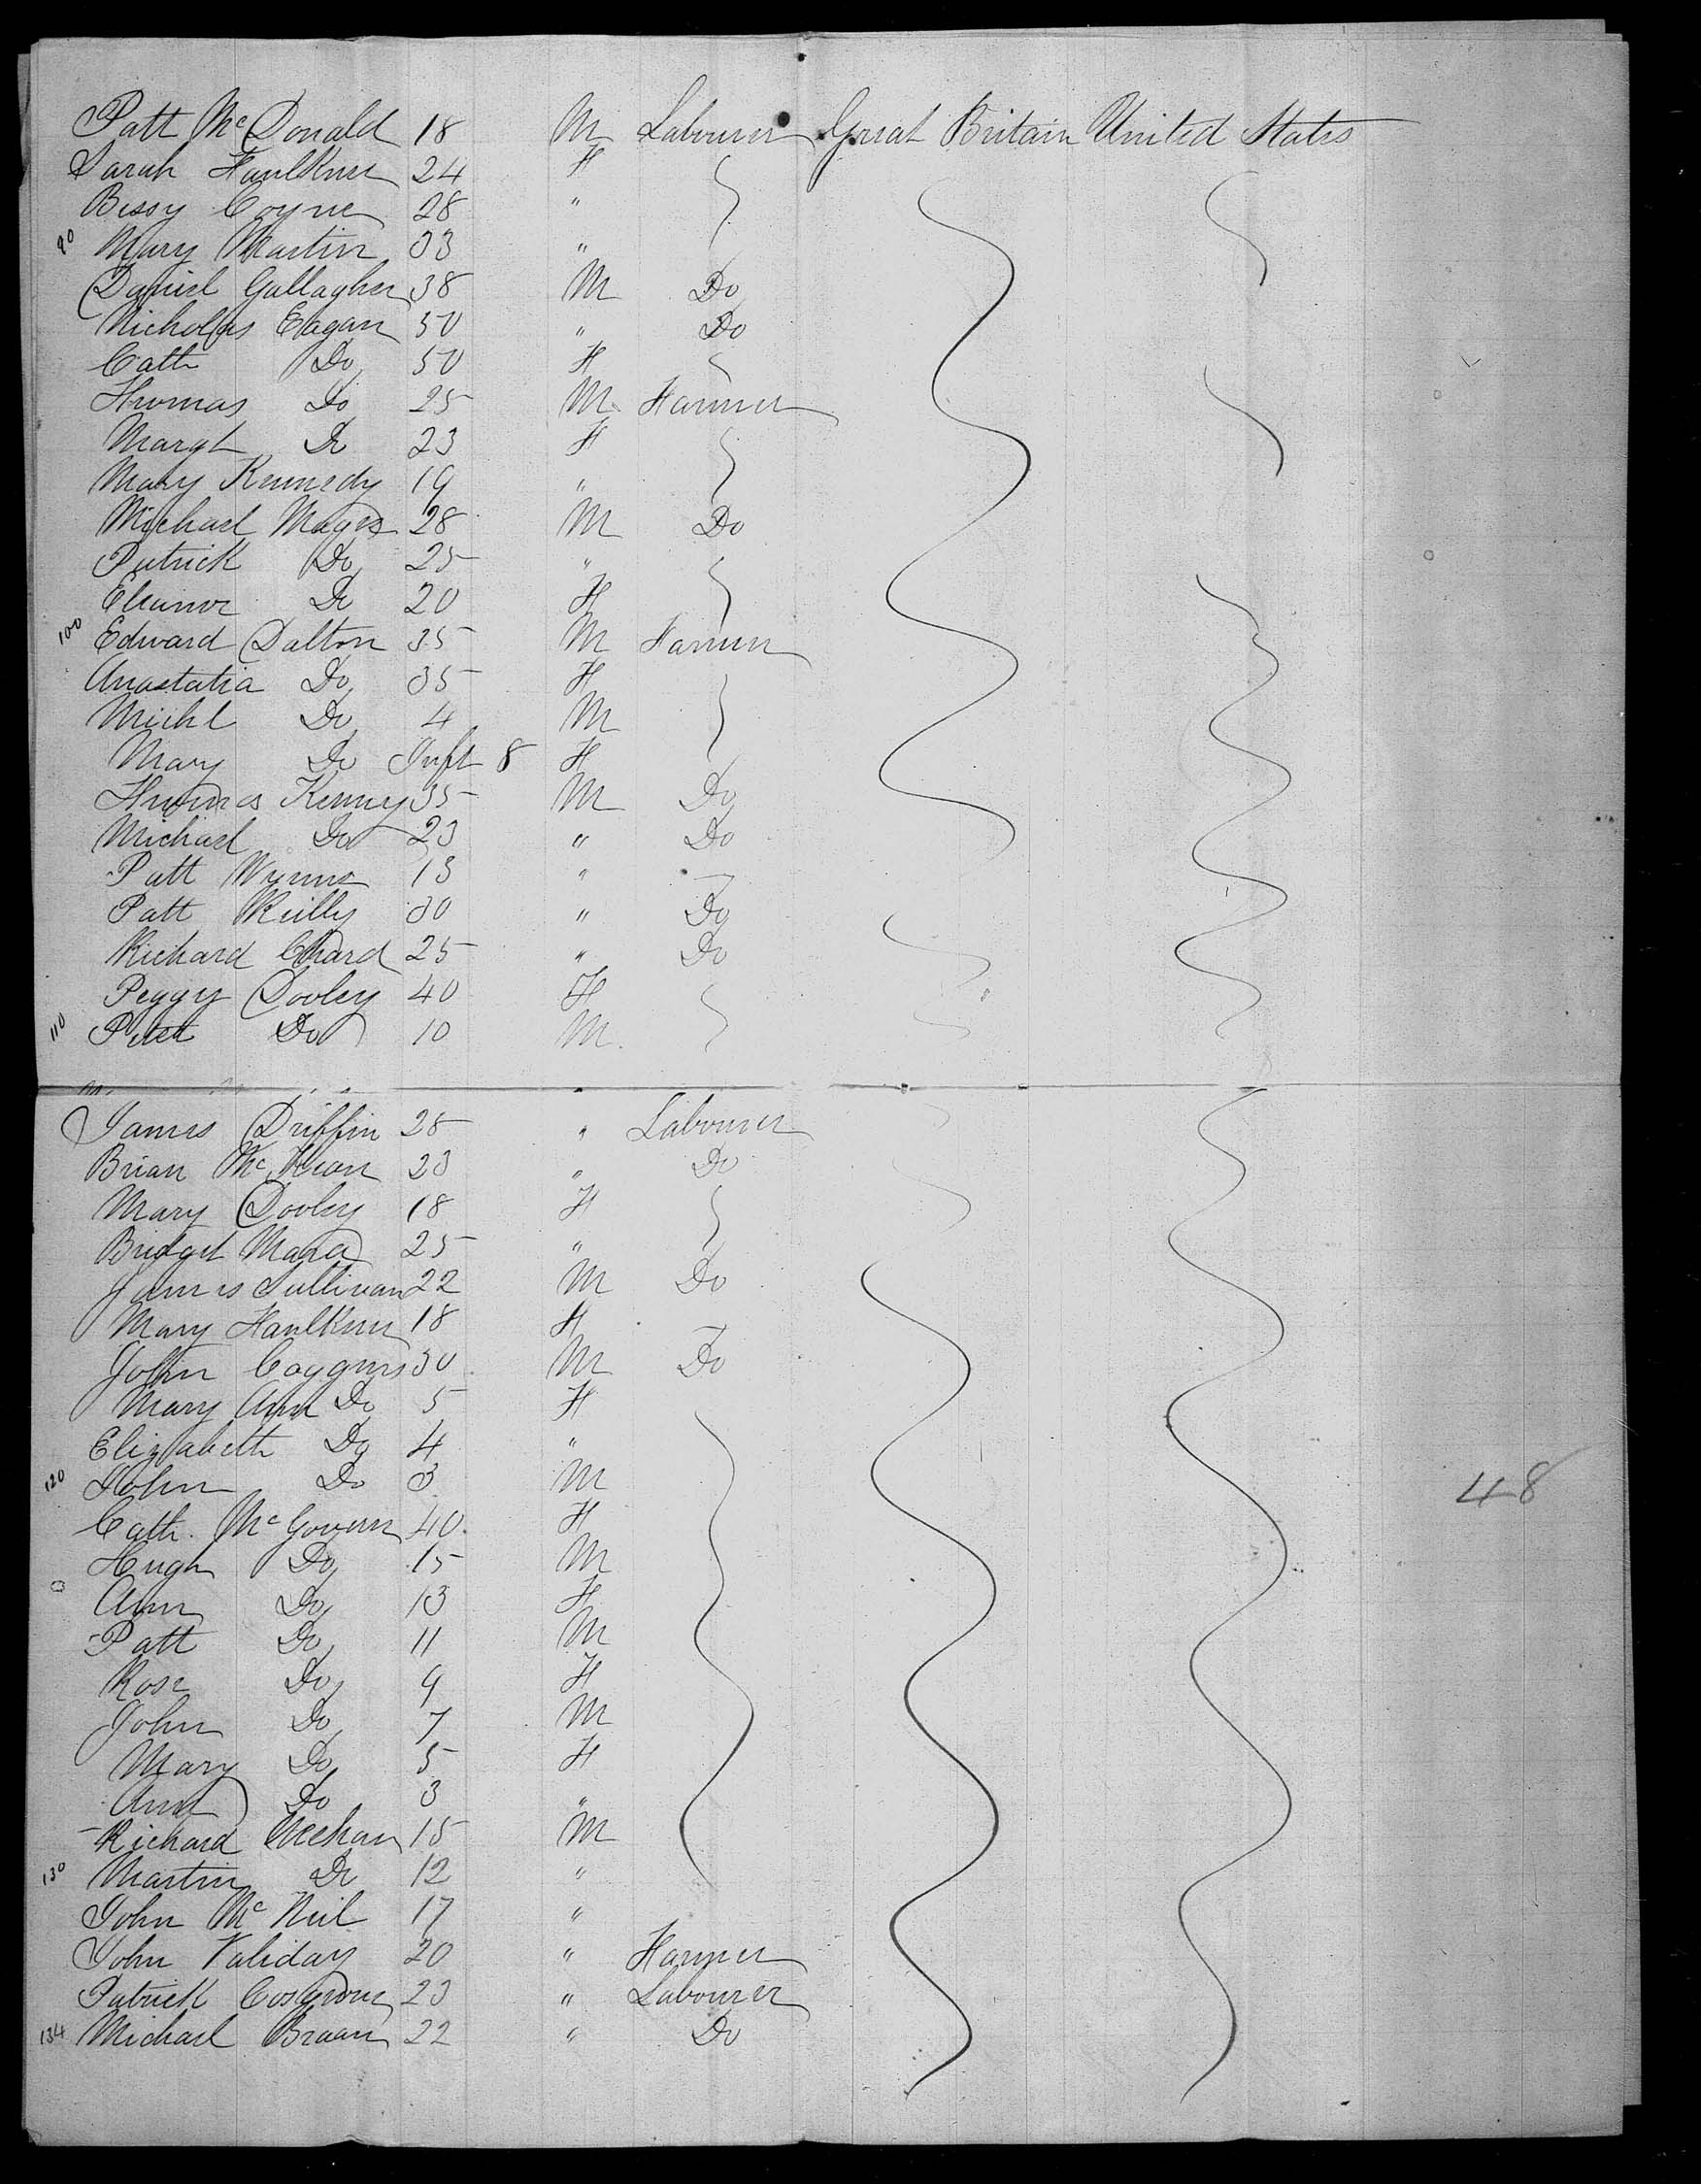 Patt McDonald 18 M Labourer Great Britain United States
Sarah Faulkner 24 F
Bessy Coyne 28 "
90 Mary Martin 33 "
Daniel Gallagher 38 M Do
Nicholas Eagan 50 " Do
Cath Do 50 F
Thomas Do 25 M Farmer
Margt Do 23 F
Mary Kennedy 19 "
Michael Magee 28 M Do
Patrick Do 25 "
Eleanor Do 20 F
100 Edward Dalton 35 M Farmer
Anastatia Do 35 F
Michl Do 4 M
Mary Do Inft 8 F
Thomas Kenney 35 M Do
Michael Do 23 " Do
Patt Wynne 13 "
Patt Reilly 30 " Do
Richard 25 " Do
Peggy Dooley 40 F
110 Peter Do 10 M
James Driffin 25 " Labourer
Brian Mc 23 " Do
Mary Dooley 18 F
Bridget Mara 25 "
James Sullivan 22 M Do
Mary Faulkner 18 F
John Coggins 30 M Do
Mary Ann Do 5 F
Elizabeth Do 4 "
120 John Do 3 M
48
Cath. McGovern 40 F
Hugh Do 15 M
Ann Do 13 F
Patt Do 11 M
Rose Do 9 F
John Do 7 M
Mary Do 5 F
Ann Do 3 "
Richard Meehan 15 M
130 Martin Do 12 "
John McNeil 17 "
John Validay 20 " Farmer
Patrick Cosgrove 23 " Labourer
134 Michael Braan 22 " Do